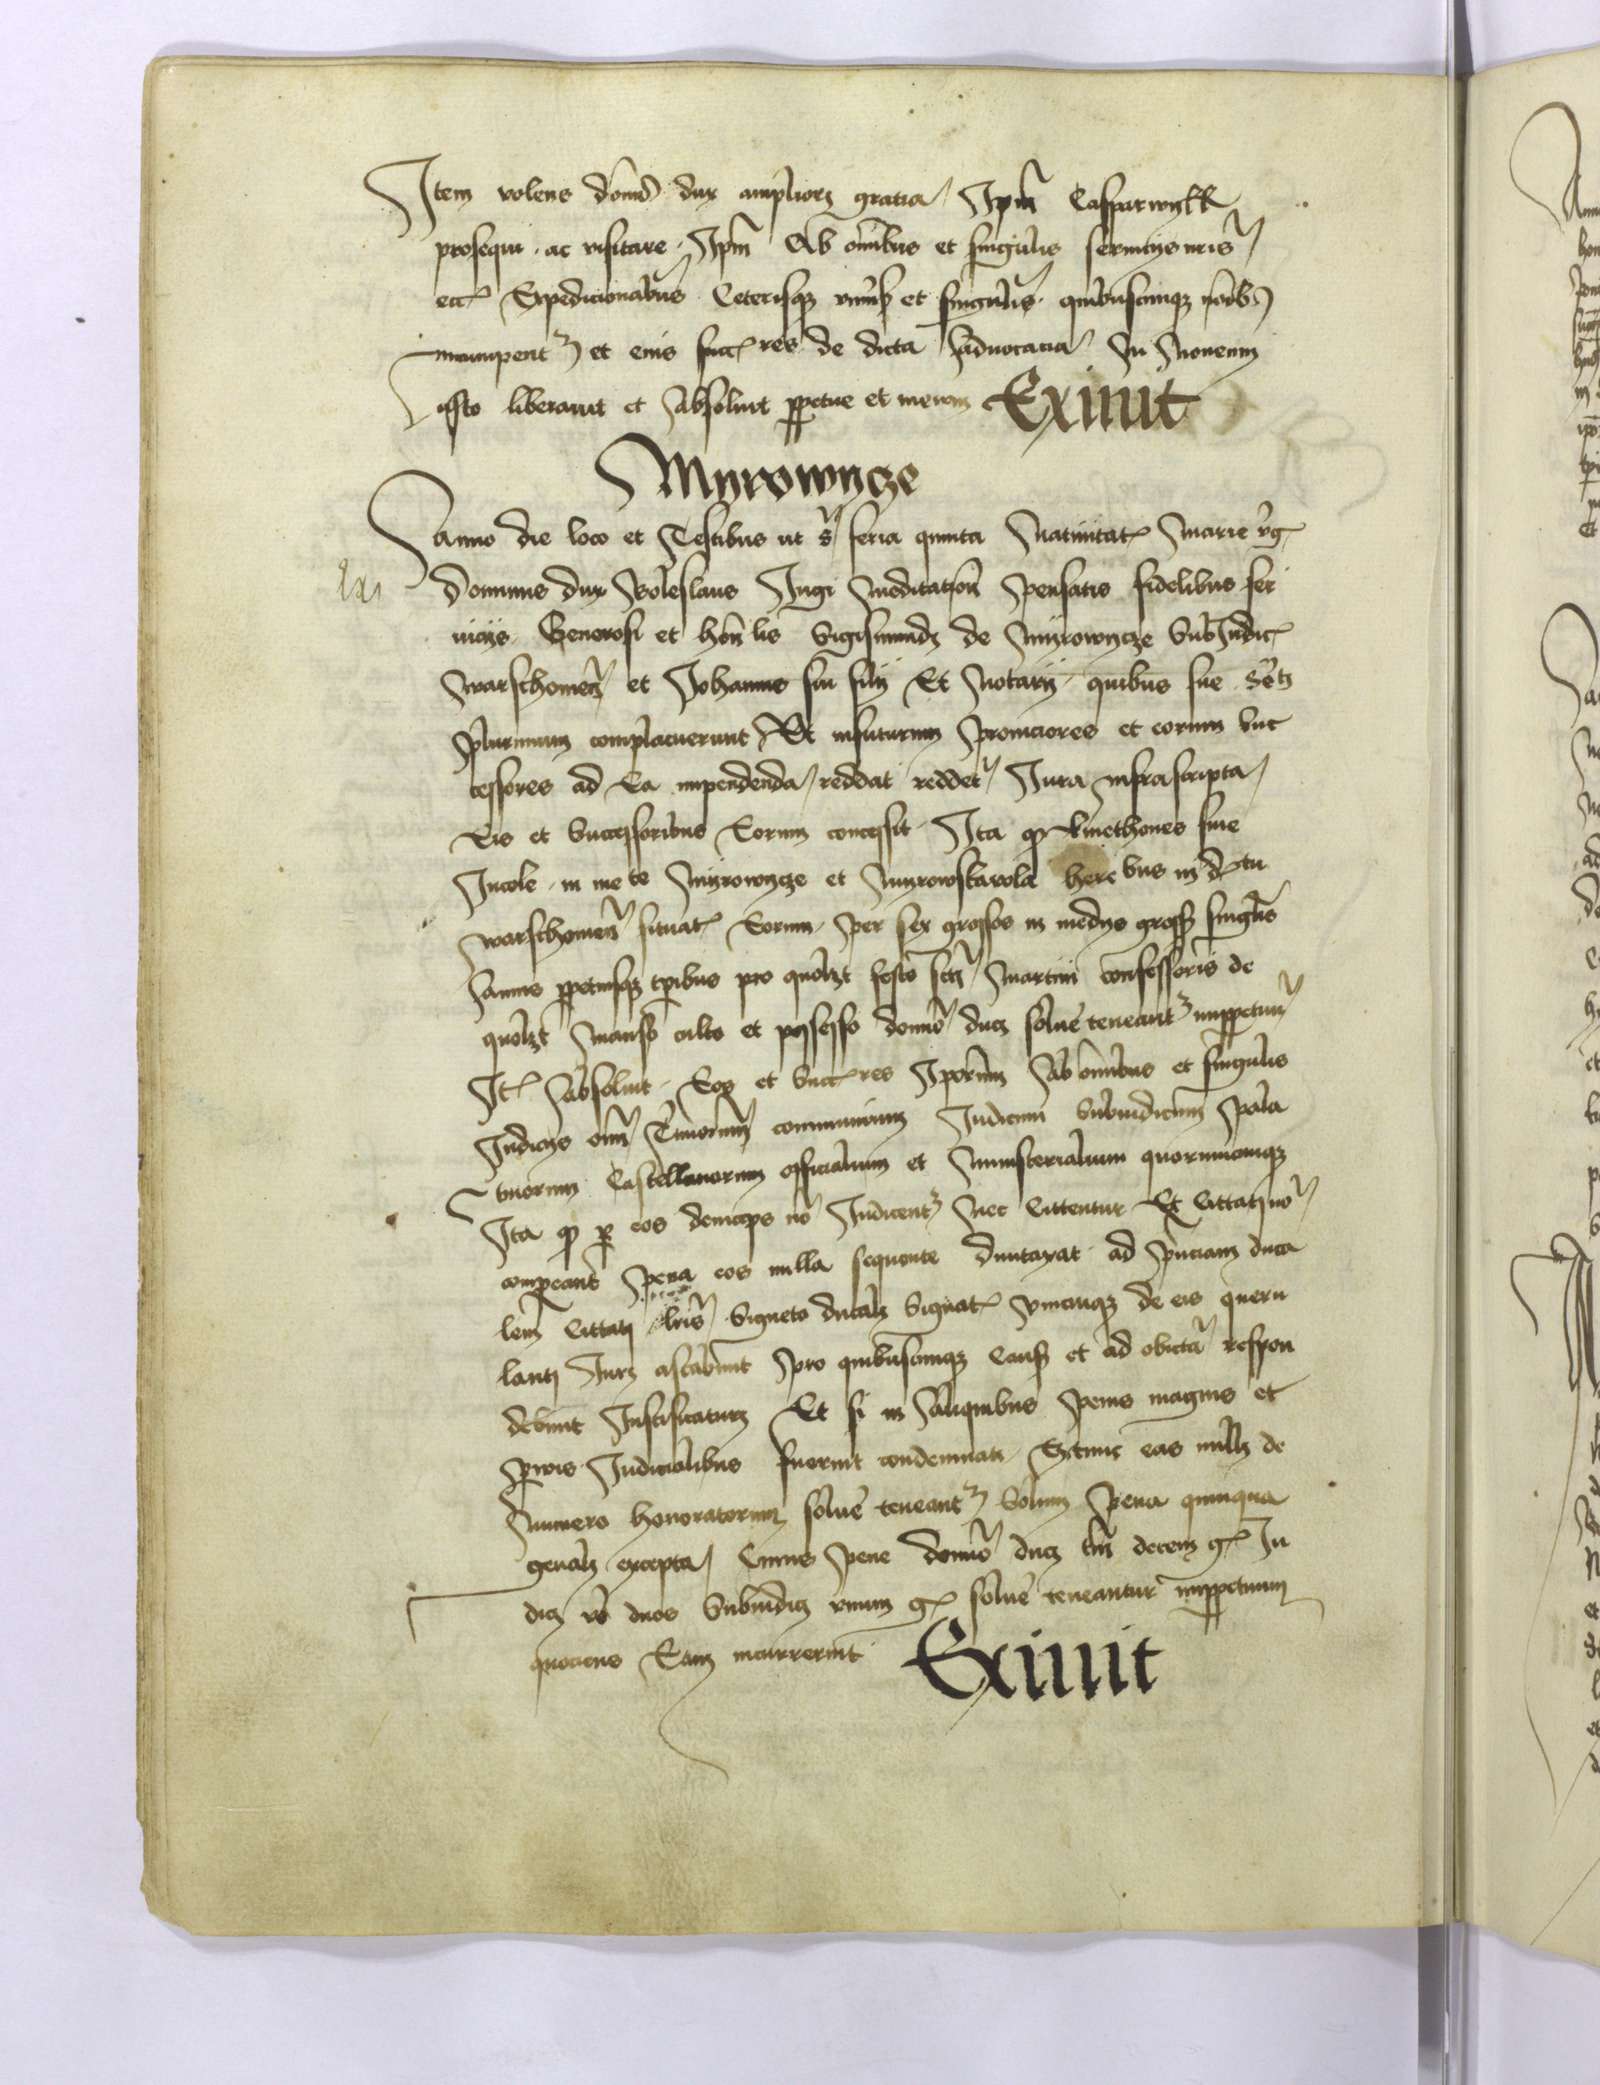 Item volens domi dux ampliorz gratia Ipm Casparwylk
prosequi ac visitare Ipm Ab omibus et singulis seruicys nris
ecc Expedicionabus Ceterisqz et singulis quibuscunqz
et eius succres de dicta Aduocacia In Nouem
liberauit et Absoluit ppetue et in Exiuit
Myrowycze
Anno die loco et Testibus ut s feria quinta Natiuitat Marie vg
Dominus dux Boleslaus Iugi meditation Pensatis fidelibus ser
uicys Generosi et honlis Sigismundi de Myrowycze Subiudic
Warschouien et Johannis sui filij Et Notarij quibus sue
Plurimum complacuerunt Et infuturum Promciores et eorum Suc
cessores ad Ea impendenda reddat reddet Iura infrascripta
Eis et Successoribus Eorum concessit Ita q kmethones siue
Incole in Myrowycze et Myrowskawola here bus in dtu
warschouien situat Eorum per sex grossos in medys gross singlis
Annis ppetuisqz tpibus pro quolzt festo sti Martini confessoris de
quolzt Manso culto et possesso domo ducz solue teneant imppetuum
It Absoluit Eos et Succres Iporum Ab omibus et singulis
Iudicys om Trrorum communium Iudicum Subiudicum Pala
tinorum Castellanorum officialium et Ministerialium quorumcunqz
Ita q p eos deinceps no Iudicent Nec Cittentur Et Cittati no
compeant Pena eos nulla sequente duntaxat ad Pnciam duca
lem Cittati lris Signeto ducali Signat vnicuiqz de eis queru
lanti Iurz astabunt Pro quibuscunqz Causis et ad obiecta respon
debunt Iustificaturi Et si in Aliquibus Penis magnis et
Pruis Iudicialibus fuerint condemnati Extunc eas nulli de
Numero honoratorum solue teneant Solum Pena quinqua
genali excepta Cuius Pene domo ducz tm decem g Iu
dici vo duos Subiudici vnum g solue teneantur imppetuum
quociens Eam incurrerint Exiuit